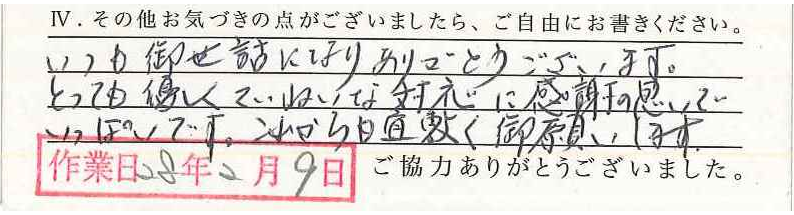 Ⅳ．その他お気づきの点がございましたら、ご自由にお書きください。
いつも御世話になりありがとうございます。
とっても優しくていねいな対応に感謝の思いで
いっぱいです。これからも宜敷く御願いします。
作業日28年2月9日
ご協力ありがとうございました。